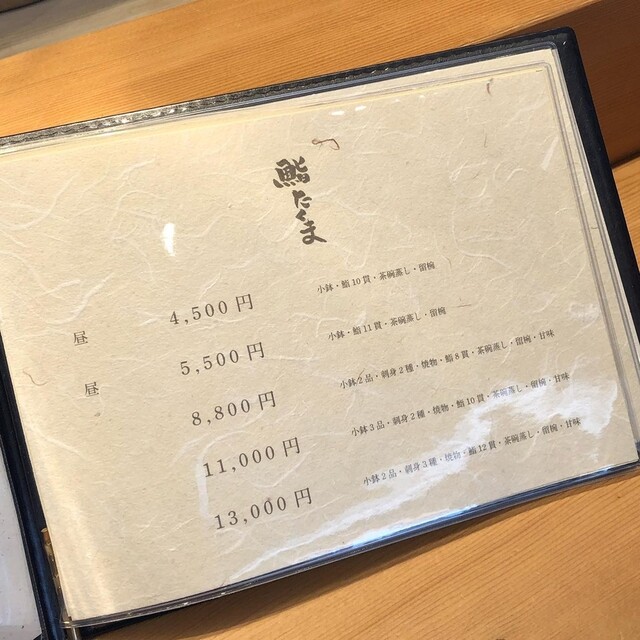 鮨たくま
昼 4,500円 小鉢・鮨10貫・茶碗蒸し・留椀
昼 5,500円 小鉢・鮨11貫・茶碗蒸し・留椀
8,800円 小鉢2品・刺身2種・焼物・鮨8貫・茶碗蒸し・留椀・甘味
11,000円 小鉢3品・刺身2種・焼物・鮨10貫・茶碗蒸し・留椀・甘味
13,000円 小鉢2品・刺身3種・焼物・鮨12貫・茶碗蒸し・留椀・甘味